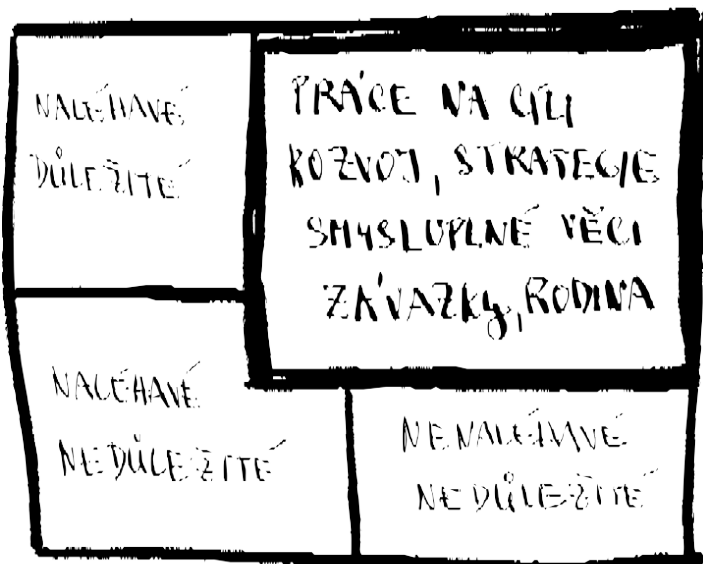 NALÉHAVÉ
DŮLEŽITÉ
PRÁCE NA CÍLI
ROZVOJ, STRATEGIE
SMYSLUPLNÉ VĚCI
ZÁVAZKY, RODINA
NALÉHAVÉ
NEDŮLEŽITÉ
NENALÉHAVÉ
NEDŮLEŽITÉ